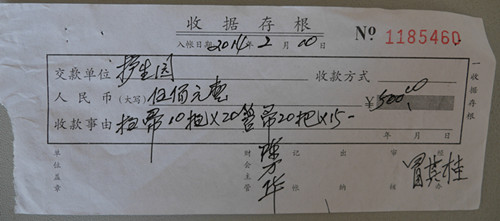 收据存根
入帐日期 2014 年 2 月 00 日
№ 1185460
交款单位 护生园 收款方式
人民币(大写) 伍佰元壹 ¥500.00
收款事由 扫帚10把×20 管帚20把×15-
年 月 日
单位盖章 财会主管 记帐 出纳 审核 经办
陈万华
冒其桂
一收据存根